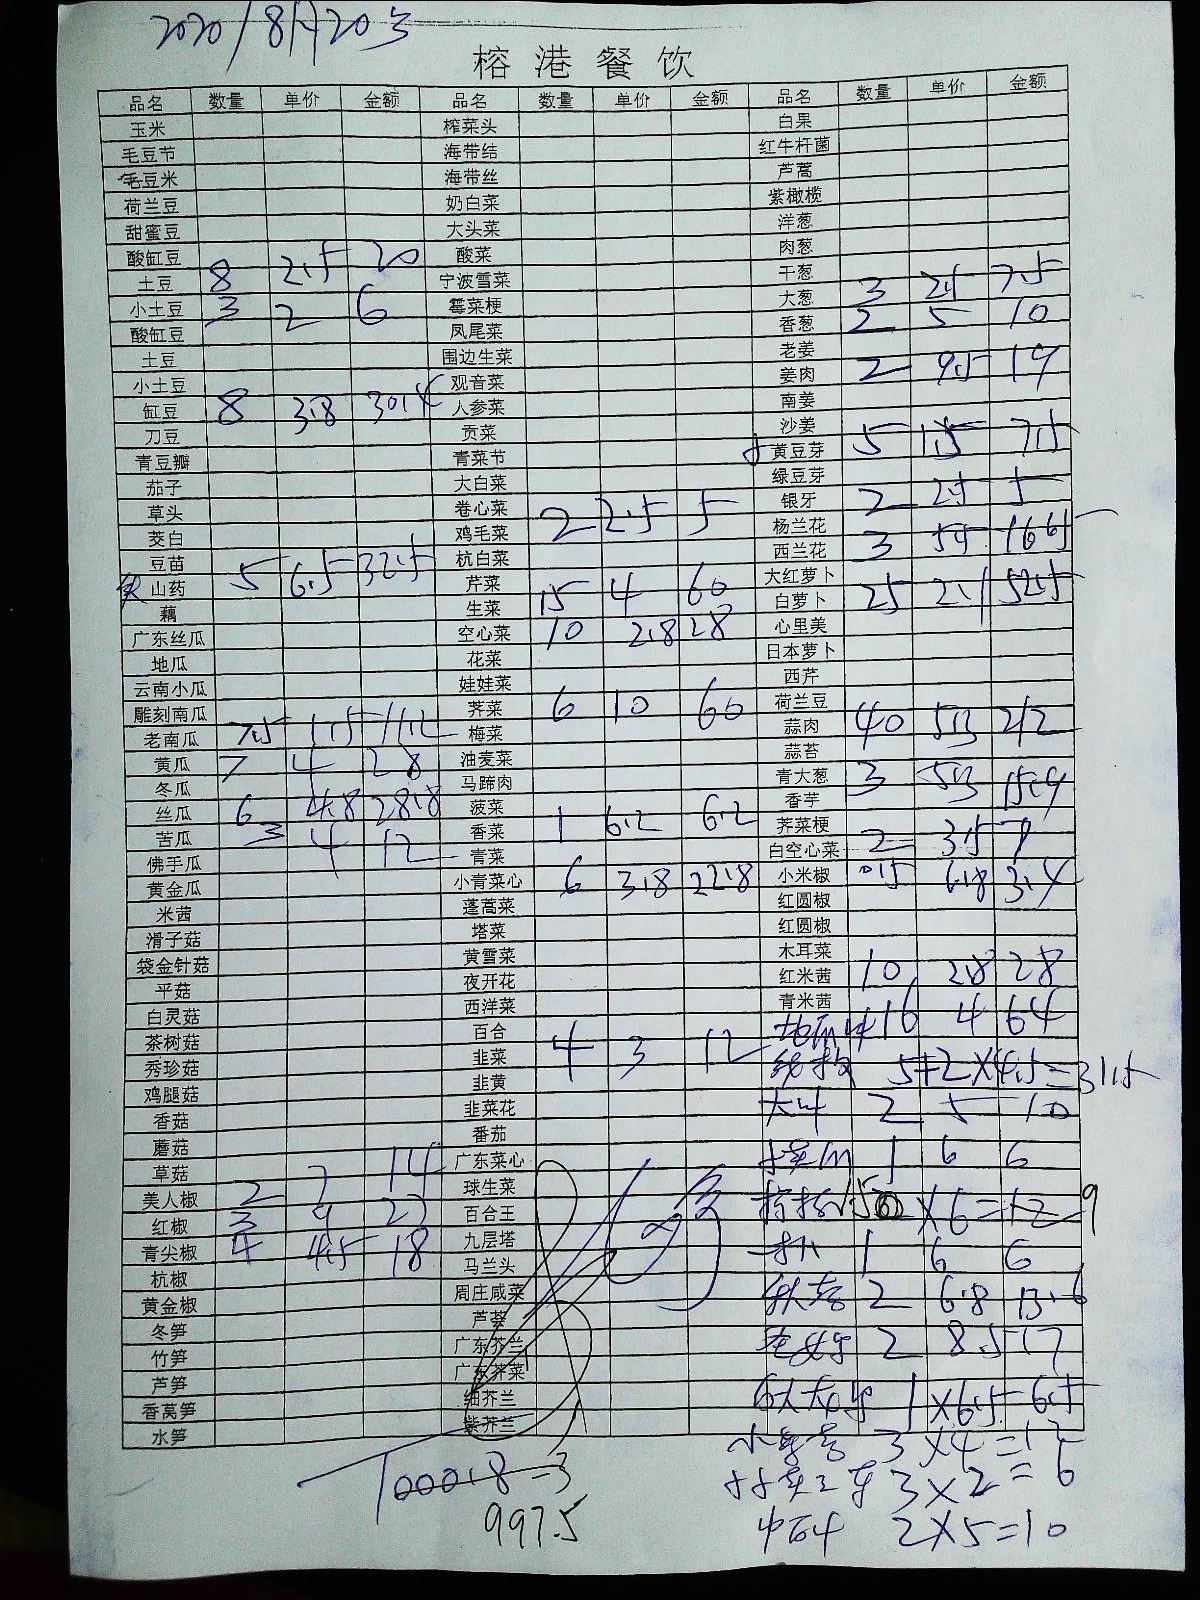 2020/8月20号
榕港餐饮
品名 数量 单价 金额 品名 数量 单价 金额 品名 数量 单价 金额
玉米 榨菜头 白果
毛豆节 海带结 红牛杆菌
毛豆米 海带丝 芦蒿
荷兰豆 奶白菜 紫橄榄
甜蜜豆 大头菜 洋葱
酸缸豆 酸菜 肉葱
土豆 8 2.5 20 宁波雪菜 干葱
小土豆 3 2 6 霉菜梗 大葱 3 2.5 7.5
酸缸豆 凤尾菜 香葱 2 5 10
土豆 围边生菜 老姜
小土豆 观音菜 姜肉 2 9.5 19
缸豆 8 3.8 30.4 人参菜 南姜
刀豆 贡菜 沙姜
青豆瓣 青菜节 黄豆芽 5 1.5 7.5
茄子 大白菜 绿豆芽
草头 卷心菜 银牙 2 2.5 5
茭白 鸡毛菜 2 2.5 5 杨兰花
豆苗 杭白菜 西兰花 3 5.5 16.5
山药 5 6.5 32.5 芹菜 大红萝卜
藕 生菜 15 4 60 白萝卜 25 2.1 52.5
广东丝瓜 空心菜 10 2.8 28 心里美
地瓜 花菜 日本萝卜
云南小瓜 娃娃菜 西芹
雕刻南瓜 荠菜 6 10 60 荷兰豆
老南瓜 7.5 1.5 11.2 梅菜 蒜肉 40 5.3 212
黄瓜 7 4 28 油麦菜 蒜苔
冬瓜 马蹄肉 青大葱 3 5.3 15.9
丝瓜 6 4.8 28.8 菠菜 香芋
苦瓜 3 4 12 香菜 1 6.2 6.2 荠菜梗
佛手瓜 青菜 白空心菜 2 3.5 7
黄金瓜 小青菜心 6 3.8 22.8 小米椒 0.5 6.8 3.4
米茜 蓬蒿菜 红圆椒
滑子菇 塔菜 红圆椒
袋金针菇 黄雪菜 木耳菜
平菇 夜开花 红米茜 10 2.8 28
白灵菇 西洋菜 青米茜
茶树菇 百合 16 4 64
秀珍菇 韭菜 4 3 12 5+2×4.5=31.5
鸡腿菇 韭黄
香菇 韭菜花 大叶 2 5 10
蘑菇 番茄
草菇 广东菜心 1 6 6
美人椒 2 7 14 球生菜
红椒 3 9 27 百合王 ×6=12 9
青尖椒 4 4.5 18 九层塔
杭椒 马兰头 1 6 6
黄金椒 周庄咸菜 2 6.8 13.6
冬笋 芦荟
竹笋 广东芥兰 2 8.5 17
芦笋 广东芥菜
香莴笋 细芥兰 1×6.5=6.5
水笋 紫芥兰
3×4=12
1000.8-3 3×2=6
997.5 2×5=10